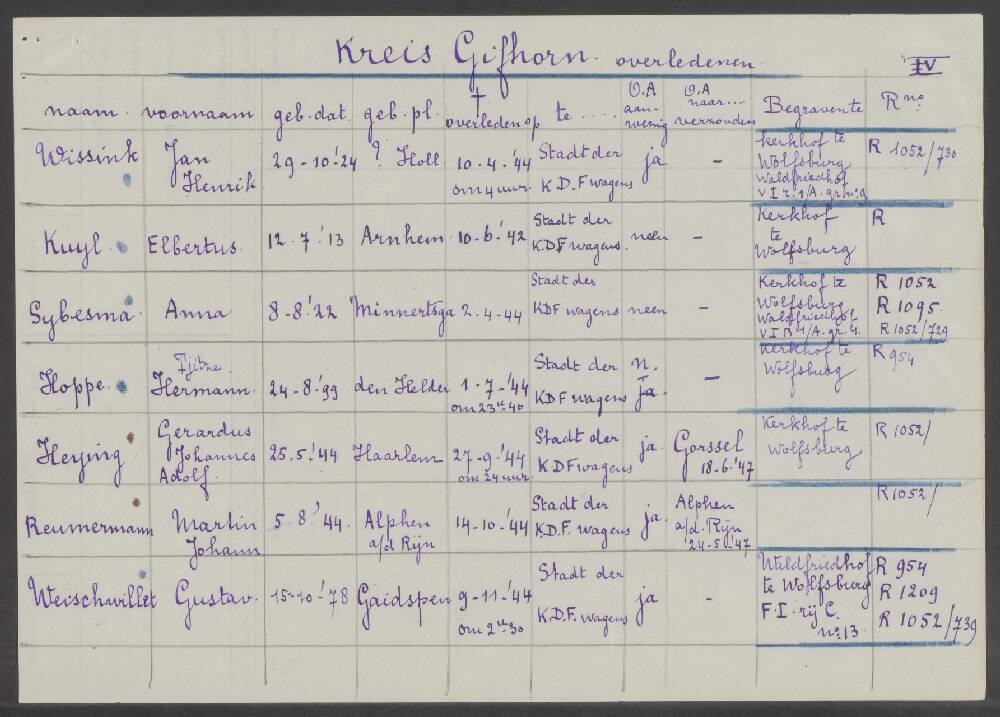 Kreis Gifhorn. overledenen.
IV
naam. voornaam geb.dat. geb.pl. † overleden op te ..... O.A aan- wezig O.A naar... verzonden Begraven te R no
Wissink Jan Henrik 29-10-'24 ? Holl. 10-4-'44 om 4 uur. Stadt der K.D.F wagens ja - Kerkhof te Wolfsburg Waldfriedhof R 1052/730
Kuyl Elbertus. 12-7-'13 Arnhem 10-6-'42 Stadt der K.D.F wagens. neen - Kerkhof te Wolfsburg R
Sybesma Anna 8-8-'22 Minnertsga 2-4-44 Stadt der KDF wagens neen - Kerkhof te Wolfsburg Waldfriedhof R 1052 R 1095. R 1052/729
Hoppe Tjitne. Hermann. 24-8-'99 den Helder 1-7-'44 om 23 u. 40 Stadt der KDF wagens n. ja. - Kerkhof te Wolfsburg R 954
Heijing Gerardus Johannes Adolf. 25.5.'44 Haarlem 27-9-'44 om 24 uur. Stadt der K.D.F wagens ja. Gorssel 18-6-'47 Kerkhof te Wolfsburg R 1052/
Reumermann Martin Johann 5-8-'44. Alphen a/d Rijn 14-10-'44 Stadt der K.D.F. wagens ja. Alphen a/d. Rijn 24-5-'47 R 1052/
Weischwillet Gustav. 15-10-'78 Gaidspen 9-11-'44 om 2 u. 30 Stadt der K.D.F. wagens ja - Waldfriedhof te Wolfsburg F.I. rij C. no. 13. R 954 R 1209 R 1052/739